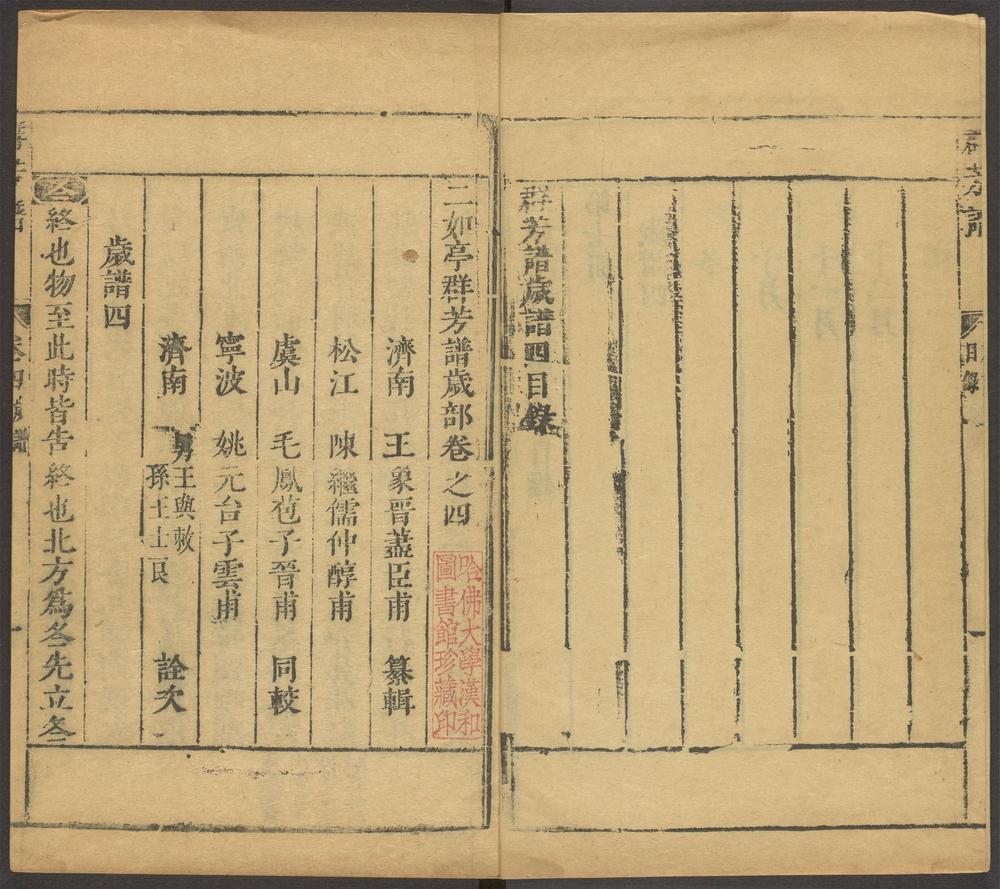 群芳譜
目錄
群芳譜歲譜四目錄
二如亭群芳譜歲部卷之四
哈佛大學漢和
圖書館珍藏印
濟南 王象晉藎臣甫 纂輯
松江 陳繼儒仲醇甫
虞山 毛鳳苞子晉甫 同較
寧波 姚元台子雲甫
濟南 男王與敕
孫王士良 詮次
歲譜四
冬終也物至此時皆告終也北方為冬先立冬
卷四 歲譜
一